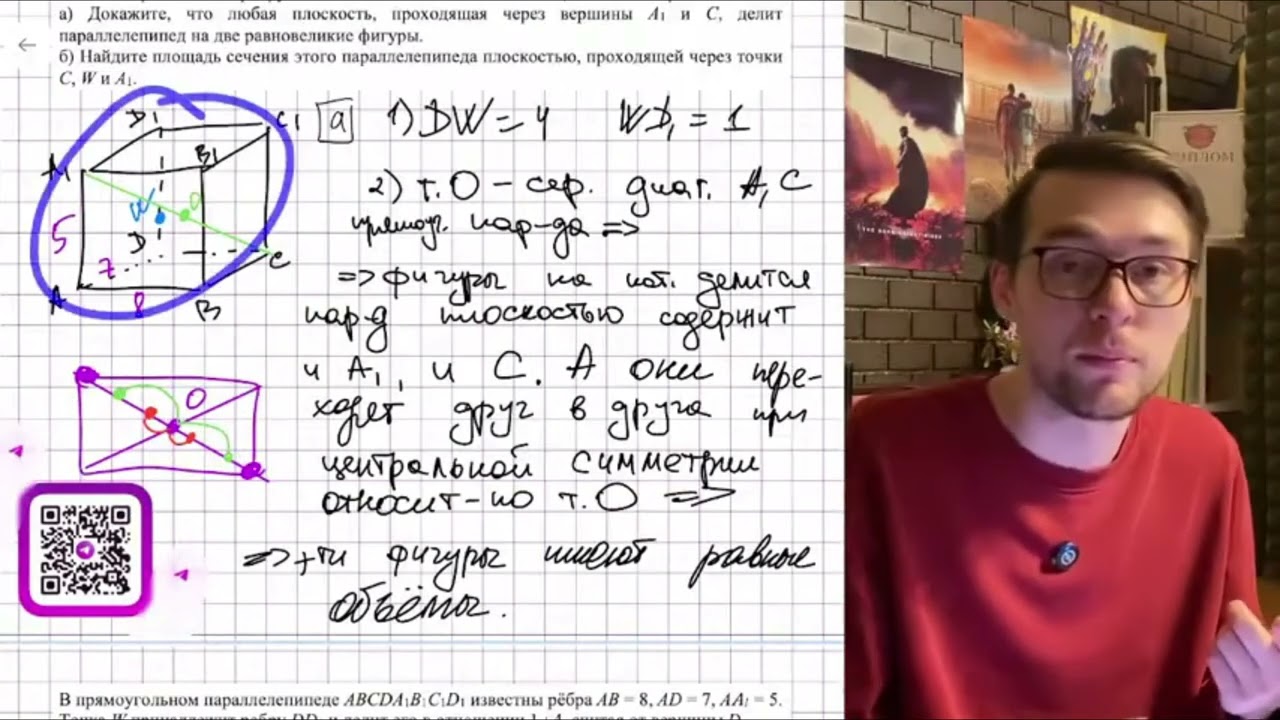 а) Докажите, что любая плоскость, проходящая через вершины A₁ и C, делит
параллелепипед на две равновеликие фигуры.
б) Найдите площадь сечения этого параллелепипеда плоскостью, проходящей через точки
C, W и A₁.
D₁ C₁
B₁
W O
5 D C
7
A 8 B
а 1) DW = 4 WD₁ = 1
2) т. O – сер. диаг. A₁C
прямоуг. пар-да =>
=> фигуры на кот. делится
пар-д плоскостью содержит
и A₁, и C. А они пере-
ходят друг в друга при
центральной симметрии
относит-но т. O =>
=> эти фигуры имеют равные
объёмы.
O
В прямоугольном параллелепипеде ABCDA₁B₁C₁D₁ известны рёбра AB = 8, AD = 7, AA₁ = 5.
Точка W принадлежит ребру DD₁ и делит его в отношении 1 : 4, считая от вершины D